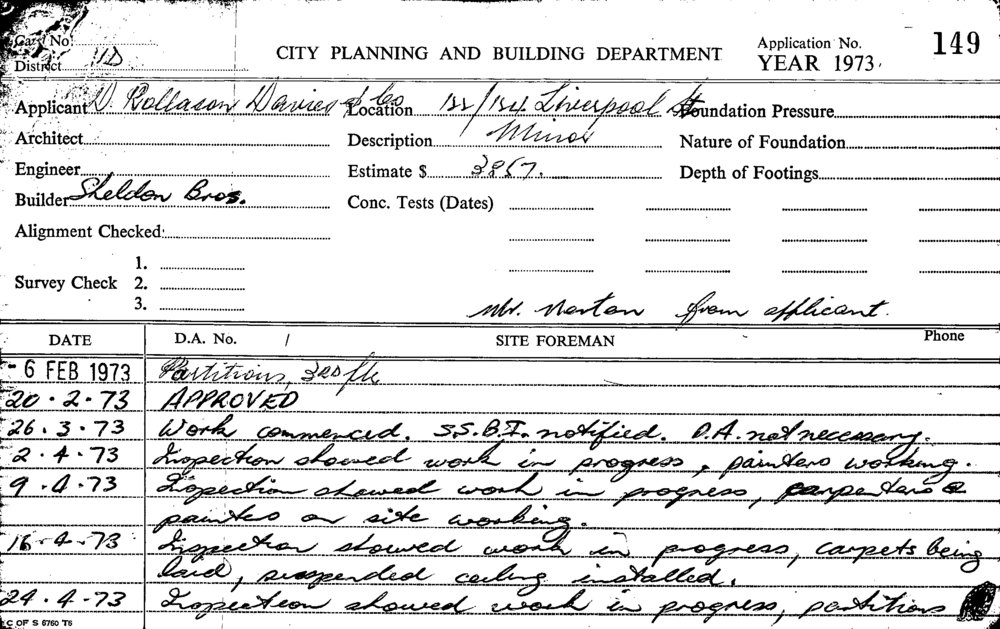 Card No.
District 11D
CITY PLANNING AND BUILDING DEPARTMENT
Application No. 149
YEAR 1973.
Applicant D. Rollason Davies & Co
Location 132/134 Liverpool St
Foundation Pressure
Architect
Description Minor
Nature of Foundation
Engineer
Estimate $ 3857.
Depth of Footings
Builder Sheldon Bros.
Conc. Tests (Dates)
Alignment Checked:
1.
Survey Check 2.
3.
Mr. Norton from applicant.
DATE D.A. No. / SITE FOREMAN Phone
- 6 FEB 1973 Partitions, 3RD flr
20.2.73 APPROVED
26.3.73 Work commenced. S.S.B.I. notified. D.A. not necessary.
2.4.73 Inspection showed work in progress, painters working.
9.4.73 Inspection showed work in progress, carpenters &
painters on site working.
16.4.73 Inspection showed work in progress, carpets being
laid, suspended ceiling installed.
24.4.73 Inspection showed work in progress, partitions
C OF S 6760 T6